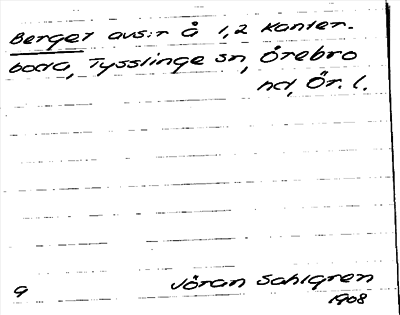 Berget avs:r å 1,2 Kanter-
boda, Tysslinge sn, Örebro
hd, Ör. l.
9 Jöran Sahlgren
1908